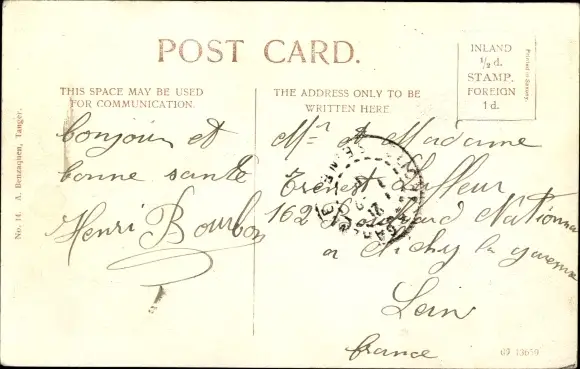 POST CARD.
THIS SPACE MAY BE USED
FOR COMMUNICATION.
THE ADDRESS ONLY TO BE
WRITTEN HERE
INLAND
½ d.
STAMP.
FOREIGN
1 d.
Printed in Saxony.
No. 14. A. Benzaquen, Tanger.
bonjour et
bonne sante
Henri Bourbon
Mr et Madame
Ernest
162 Boulevard National
a clichy la garenne
France
09 13659